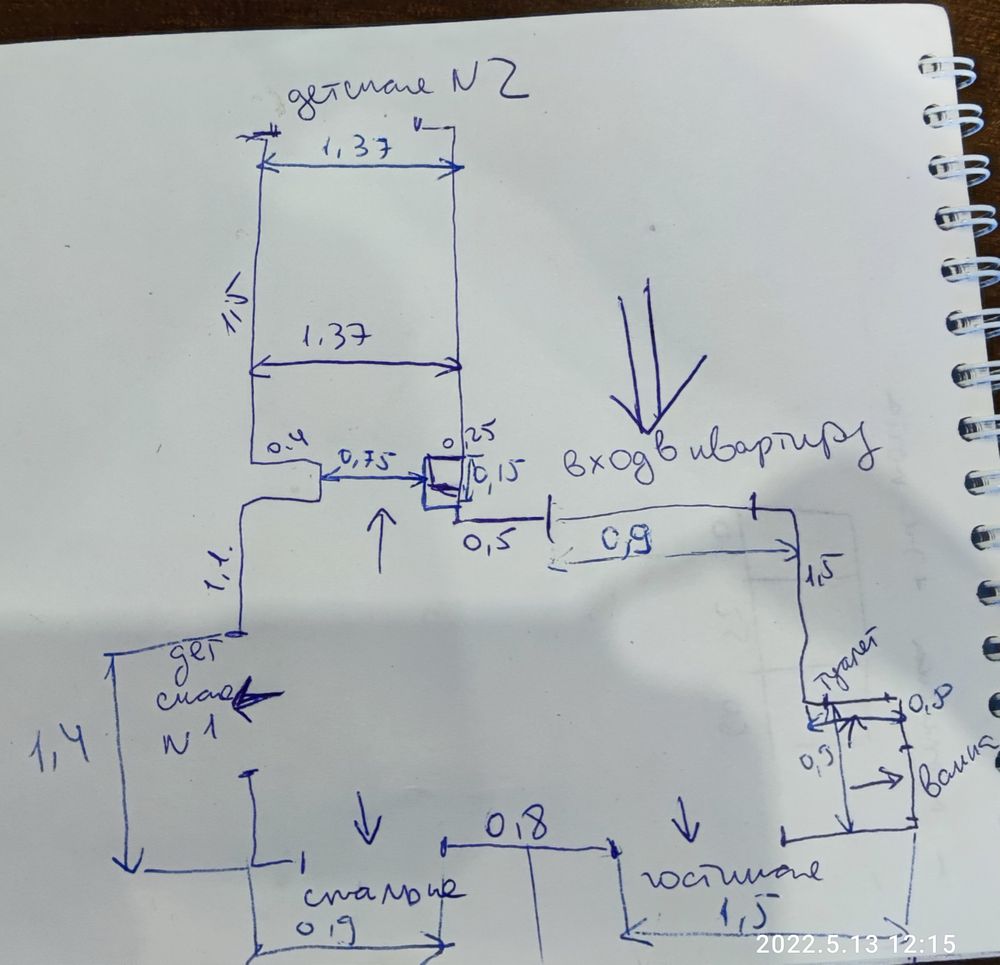 детская N 2
1,37
1,5
1,37
0,4
0,75
0,25
0,15
вход в квартиру
0,5
0,9
1,1
1,5
дет
ская
N 1
туалет
0,8
0,9
ванна
1,4
0,8
спальне
гостиная
0,9
1,5
2022.5.13 12:15